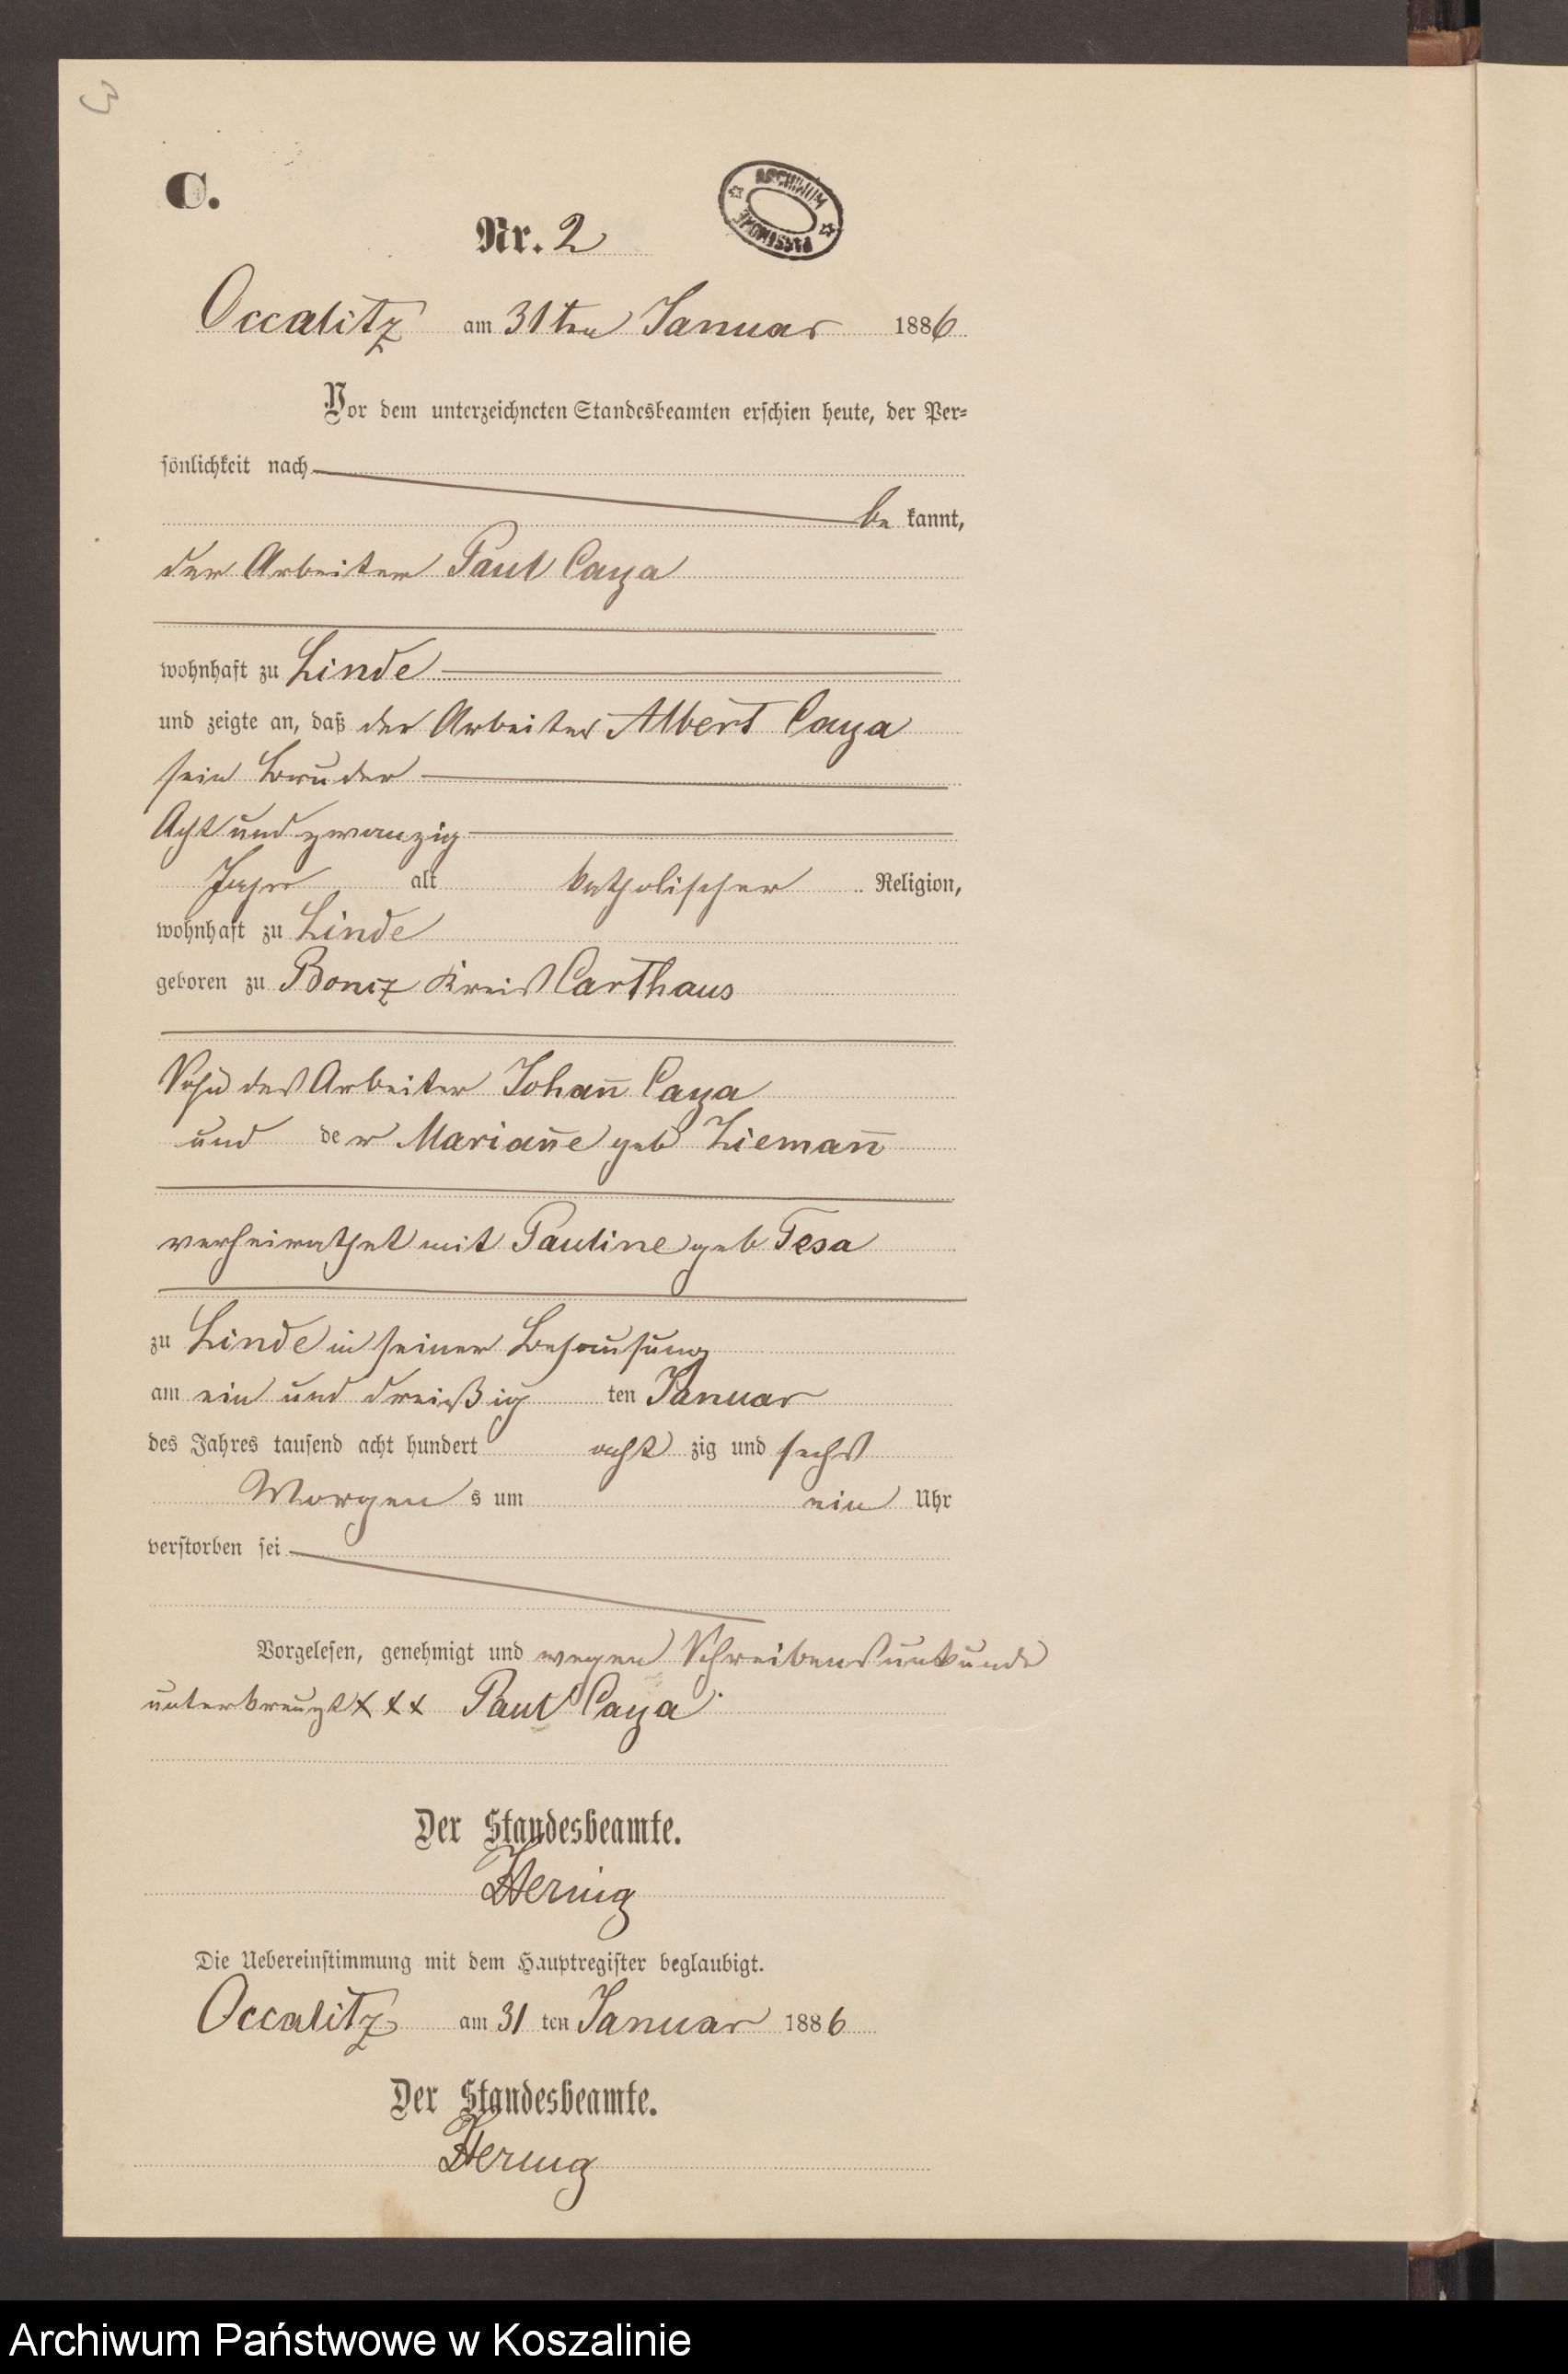 3
C.
ARCHIWUM PAŃSTWOWE
Nr. 2
Occalitz am 31ten Januar 1886
Vor dem unterzeichneten Standesbeamten erschien heute, der Per-
sönlichkeit nach
be kannt,
der Arbeiter Paul Caya
wohnhaft zu Linde
und zeigte an, daß der Arbeiter Albert Caya
sein Bruder
Acht und zwanzig
Jahre alt katholischer Religion,
wohnhaft zu Linde
geboren zu Kreis Carthaus
Sohn des Arbeiter Johan̄ Caya
und der Marian̄e geb Lieman̄
verheirathet mit Pauline geb Tesa
zu Linde in seiner Behausung
am ein und dreißig ten Januar
des Jahres tausend acht hundert acht zig und sechs
Morgen s um ein Uhr
verstorben sei
Vorgelesen, genehmigt und wegen Schreibensunkunde
unterkreuzt xxx Paul Caya
Der Standesbeamte.
Hering
Die Uebereinstimmung mit dem Hauptregister beglaubigt.
Occalitz am 31 ten Januar 1886
Der Standesbeamte.
Hering
Archiwum Państwowe w Koszalinie